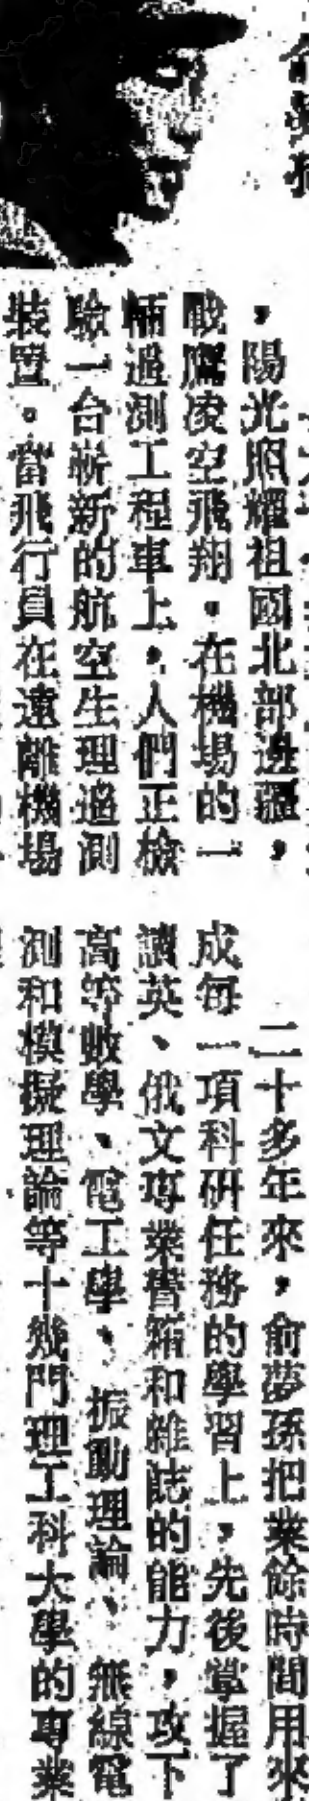 俞夢孫
，陽光照耀祖國北部邊疆，
戰鷹凌空飛翔。在機場的一
輛遥測工程車上，人們正檢
驗一台嶄新的航空生理遥測
裝置。當飛行員在遠離機場
二十多年來，俞夢孫把業餘時間用來
成每一項科研任務的學習上，先後掌握了
讀英、俄文專業書籍和雜誌的能力，攻下
高等數學、電工學、振動理論、無線電
測和模擬理論等十幾門理工科大學的專業